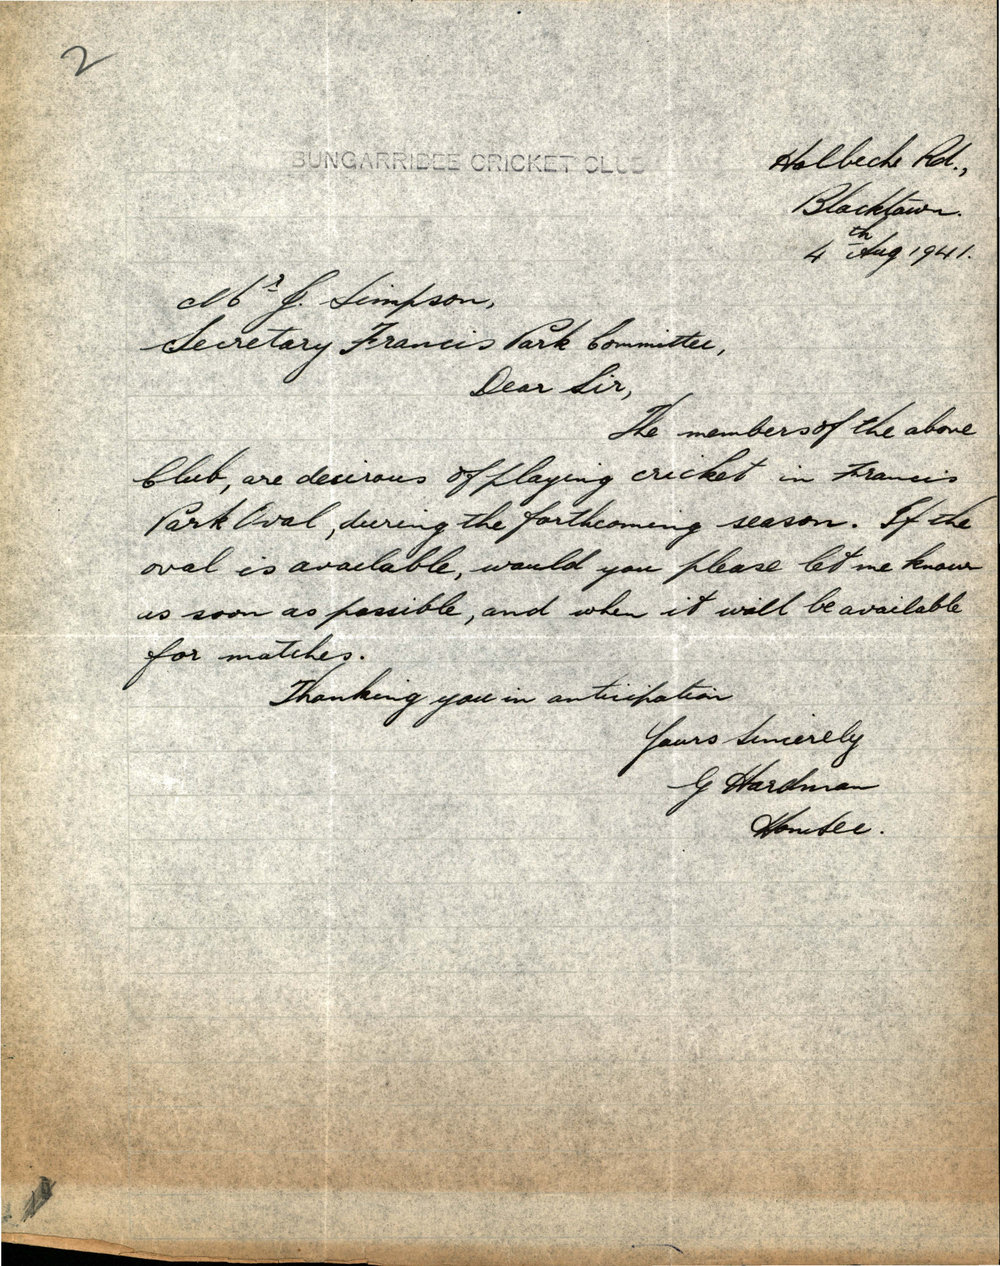 2
BUNGARRIBEE CRICKET CLUB
Holbeche Rd.,
Blacktown.
4th Aug 1941.
Mr J. Simpson,
Secretary Francis Park Committee,
Dear Sir,
The members of the above
Club, are desirous of playing cricket in Francis
Park Oval, during the forthcoming season. If the
oval is available, would you please let me know
as soon as possible, and when it will be available
for matches.
Thanking you in anticipation
Yours Sincerely
G Hardman
Hon Sec.